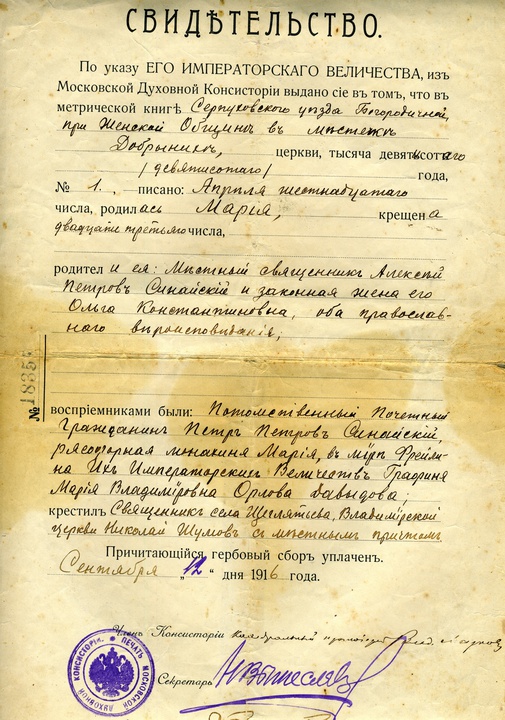 СВИДѢТЕЛЬСТВО.
По указу ЕГО ИМПЕРАТОРСКАГО ВЕЛИЧЕСТВА, изъ
Московской Духовной Консисторіи выдано сіе въ томъ, что въ
метрической книгѣ Серпуховского уѣзда Богородичной,
при Женской Общинѣ въ мѣстечкѣ
Добрынихѣ, церкви, тысяча девятисотаго
/девятисотаго/ года,
№ 1. , писано: Апрѣля шестнадцатаго
числа, родилась Марія, крещена
двадцать третьяго числа,
родители ея: Мѣстный священникъ Алексѣй
Петровъ Синайскій и законная жена его
Ольга Константиновна, оба православ-
наго вѣроисповѣданія;
№ 18355
воспріемниками были: Потомственный Почетный
Гражданинъ Петръ Петровъ Синайскій,
рясофорная монахиня Марія, въ мірѣ Фрейли-
на Ихъ Императорскихъ Величествъ Графиня
Марія Владиміровна Орлова Давыдова;
крестилъ Священникъ села Щеглятьева, Владимірской
церкви Николай Шумовъ съ мѣстнымъ причтомъ
Причитающійся гербовый сборъ уплаченъ.
Сентября „12“ дня 1916 года.
Членъ Консисторіи каѳедральный
Секретарь
ПЕЧАТЬ МОСКОВСКОЙ ДУХОВНОЙ КОНСИСТОРІИ.